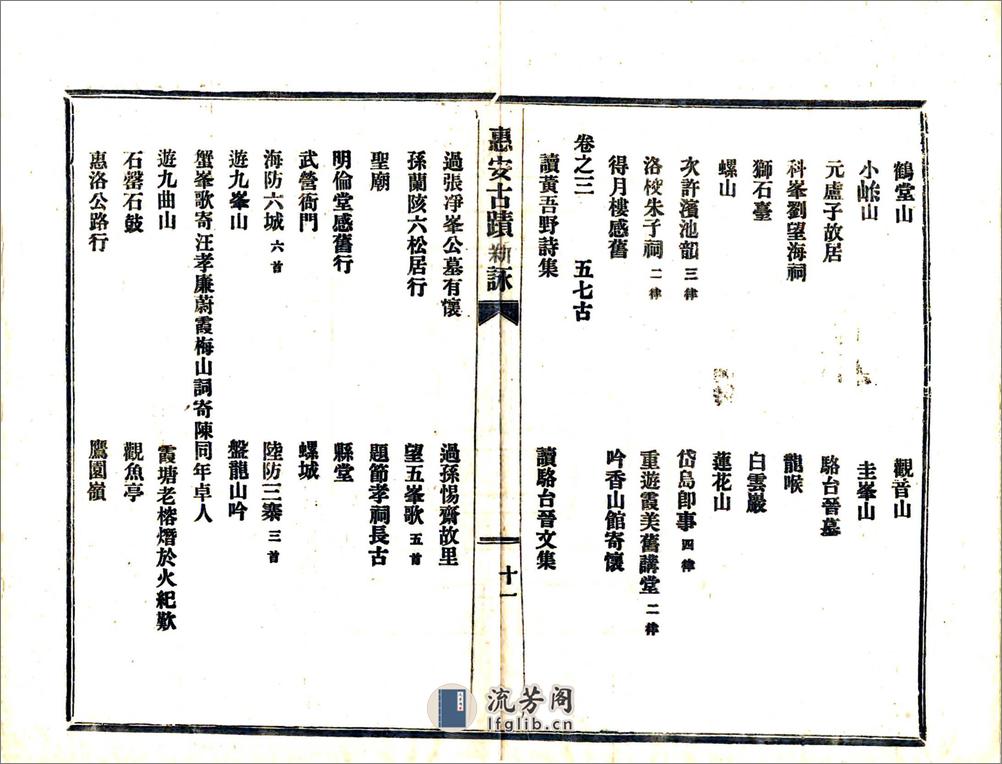 鶴堂山　觀音山
小㠓山　圭峯山
元盧子故居　駱台晉墓
科峯劉望海祠　龍喉
獅石臺　白雲巖
螺山　蓮花山
次許濱池韻 三律　岱島卽事 四律
洛桉朱子祠 二律　重遊霞美舊講堂 二律
得月樓感舊　吟香山館寄懷
卷之三　五七古
讀黃吾野詩集　讀駱台晉文集
惠安古蹟新詠　十一
過張凈峯公墓有懷　過孫惕齋故里
孫蘭陔六松居行　望五峯歌 五首
聖廟　題節孝祠長古
明倫堂感舊行　縣堂
武營衙門　螺城
海防六城 六首　陸防三寨 三首
遊九峯山　盤龍山吟
蟹峯歌寄汪孝廉蔚霞梅山詞寄陳同年卓人
遊九曲山　霞塘老榕燬於火紀歎
石罄石鼓　觀魚亭
惠洛公路行　鷹園嶺
流芳阁
lfglib.cn